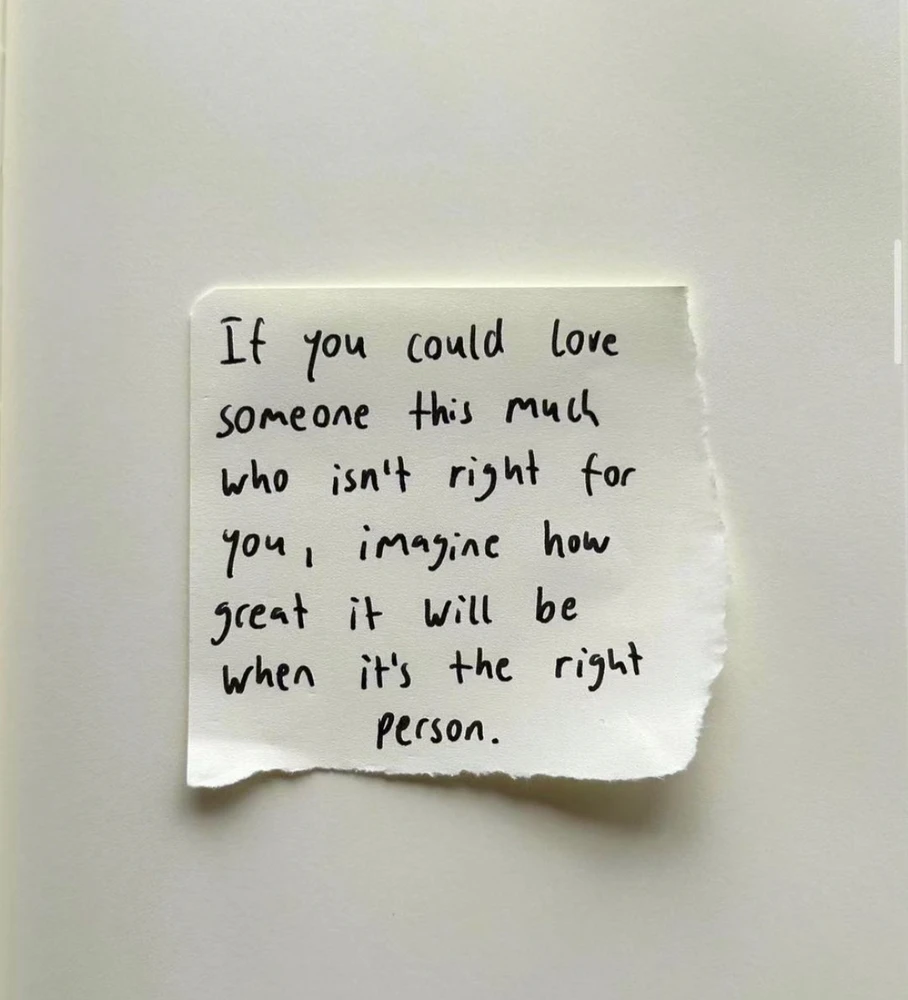 If you could love
someone this much
who isn't right for
you, imagine how
great it will be
when it's the right
person.